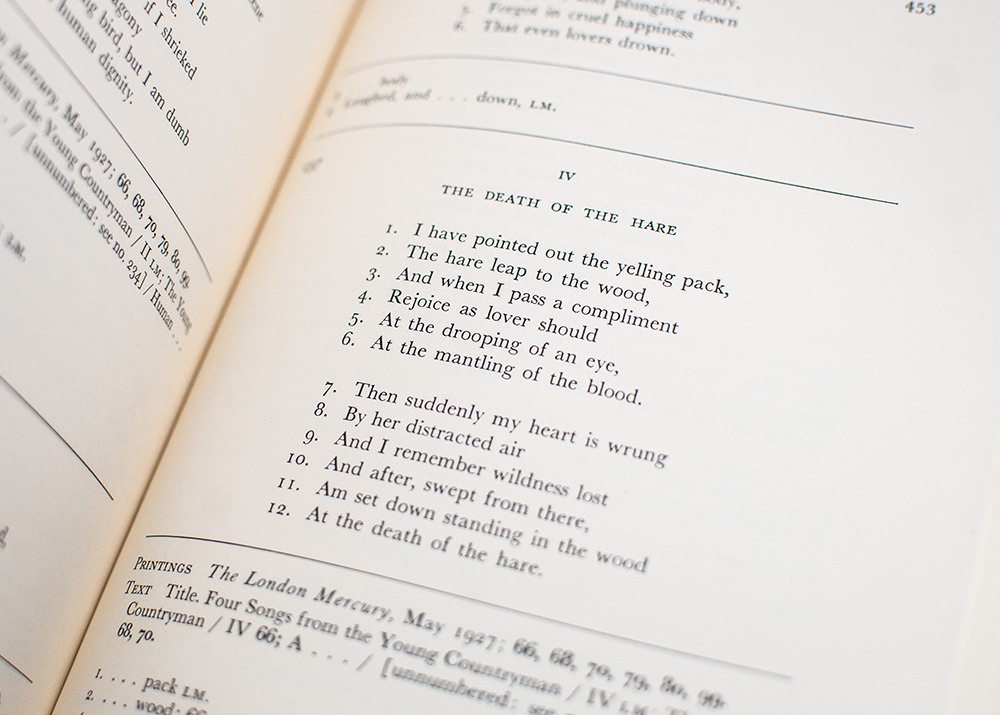 I lie
if I shrieked
bird, but I am dumb
human dignity.
Mercury, May 1927; 66, 68, 70, 79, 80, 99.
from the Young Countryman / II L.M; The Young
/ [unnumbered: see no. 234] / Human . . .
L.M.
453
plunging down
5. Forgot in cruel happiness
6. That even lovers drown.
body
Laughed, and . . . down, L.M.
IV
THE DEATH OF THE HARE
1. I have pointed out the yelling pack,
2. The hare leap to the wood,
3. And when I pass a compliment
4. Rejoice as lover should
5. At the drooping of an eye,
6. At the mantling of the blood.
7. Then suddenly my heart is wrung
8. By her distracted air
9. And I remember wildness lost
10. And after, swept from there,
11. Am set down standing in the wood
12. At the death of the hare.
PRINTINGS The London Mercury, May 1927; 66, 68, 70, 79, 80, 99.
TEXT Title. Four Songs from the Young Countryman / IV L.M; The
Countryman / IV 66; A . . . / [unnumbered: see
68, 70.
1. . . . pack L.M.
2. . . . wood: 66